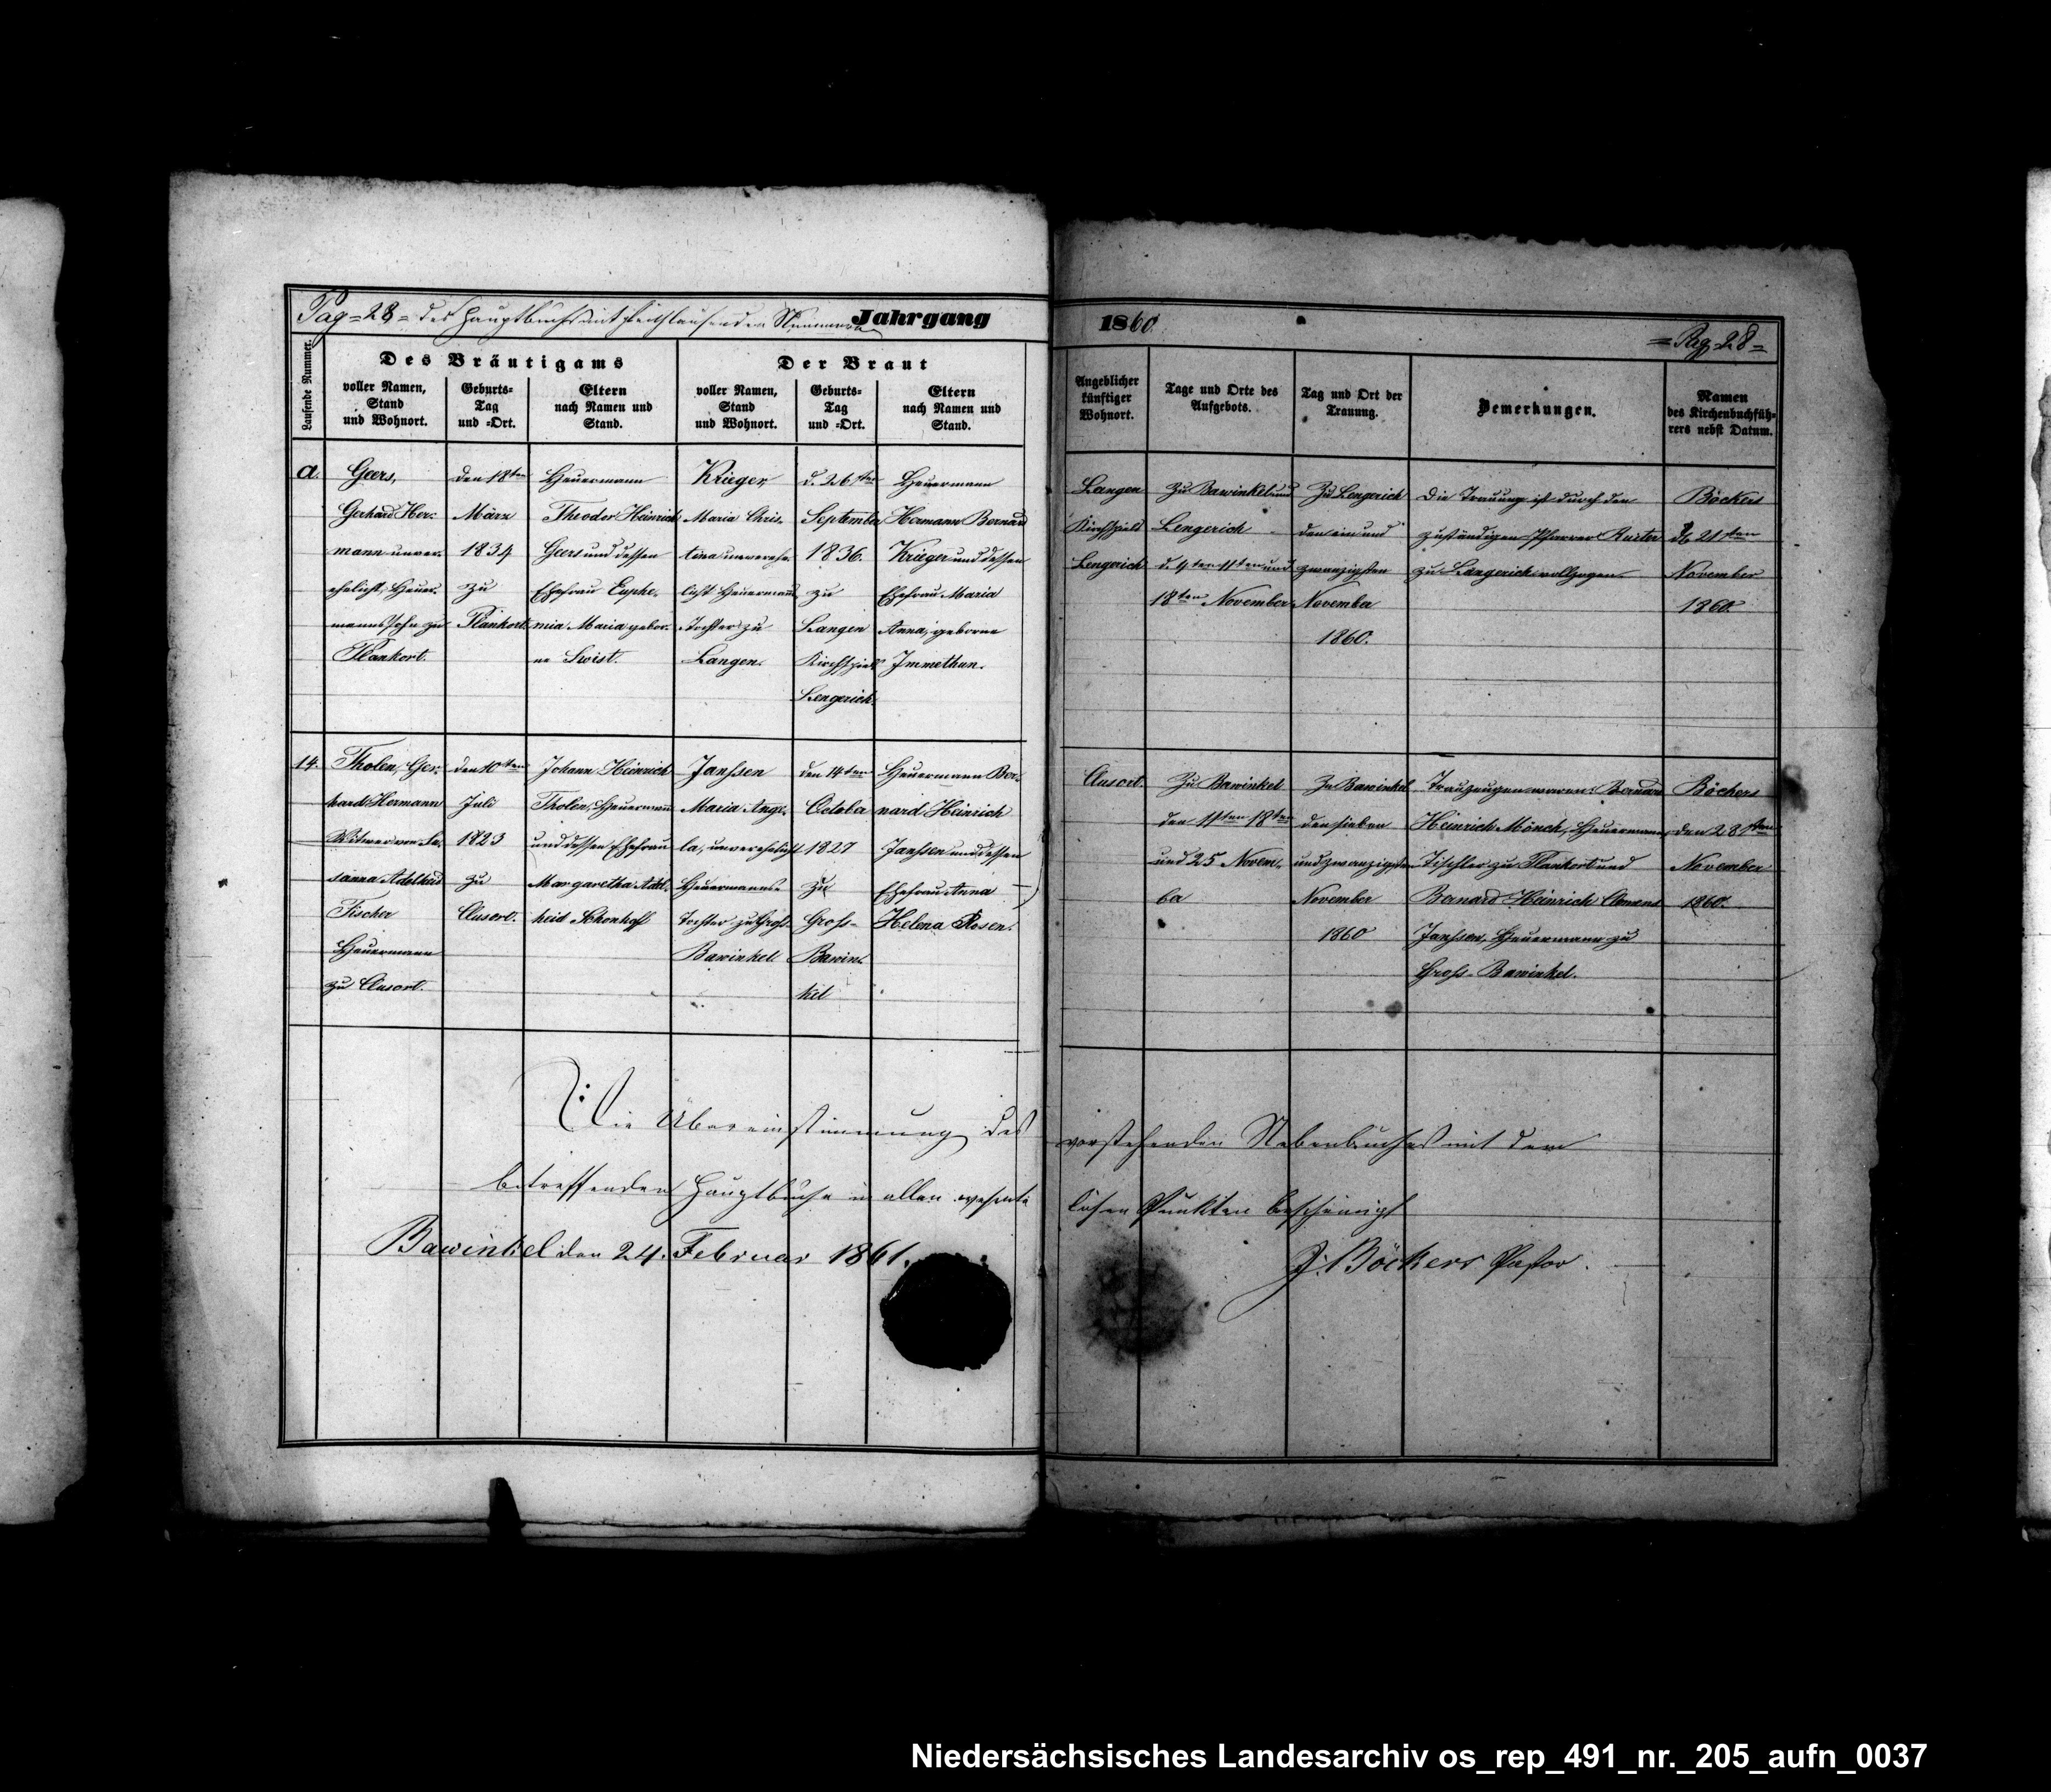 Pag. 28 = des Hauptbuchs mit gleichlaufenden Nummern
Jahrgang 1860
= Pag. 28 =
Laufende Nummer.
Des Bräutigams
voller Namen,
Stand
und Wohnort.
Geburts-
Tag
und -Ort.
Eltern
nach Namen und
Stand.
Der Braut
voller Namen,
Stand
und Wohnort.
Geburts-
Tag
und -Ort.
Eltern
nach Namen und
Stand.
Angeblicher
künftiger
Wohnort.
Tage und Orte des
Aufgebots.
Tag und Ort der
Trauung.
Bemerkungen.
Namen
des Kirchenbuchfüh-
rers nebst Datum.
a.
Geers,
Gerhard Her-
mann unver-
ehelicht, Heuer-
manns Sohn zu
Plankort.
den 18ten
März
1834
zu
Plankort
Heuermann
Theodor Heinrich
Geers und dessen
Ehefrau Euphe-
mia Maria gebor-
ne Swist.
Krieger,
Maria Chris-
tina unverehe-
licht Heuermanns
Tochter zu
Langen.
d. 26ten
September
1836.
zu
Langen
Kirchspiels
Lengerich.
Heuermann
Hermann Bernard
Krieger und dessen
Ehefrau Maria
Anna, geborne
Immethun.
Langen
Kirchspiels
Lengerich
Zu Bawinkel und
Lengerich
d. 4ten 11ten und
18ten November
Zu Lengerich
den ein und
zwanzigsten
November
1860.
Die Trauung ist durch den
zuständigen Pfarrer
zu Lengerich vollzogen.
Böckers
d. 21sten
November
1860
14.
Tholen, Ger-
hard Hermann
Witwer von Su-
sanna Adelheid
Fischer
Heuermann
zu Clusort.
den 10ten
Juli
1823
zu
Clusort.
Johann Heinrich
Tholen, Heuermann
und dessen Ehefrau
Margaretha Adel-
heid Schonhoff
Janssen
Maria Ange-
la, unverehelicht
Heuermanns
Tochter zu Gross-
Bawinkel
den 14ten
October
1827
zu
Gross-
Bawin-
kel
Heuermann Ber-
nard Heinrich
Janssen und dessen
Ehefrau Anna
Helena Rosen.
Clusort.
Zu Bawinkel
den 11ten 18ten
und 25 Novem-
ber
Zu Bawinkel
den sieben
und zwanzigsten
November
1860
Trauzeugen waren: Bernard
Heinrich Mönch, Heuermann
Tischler zu Plankort und
Bernard Heinrich Clemens
Janssen, Heuermann zu
Gross-Bawinkel.
Böckers
den 28sten
November
1860.
Die Übereinstimmung des vorstehenden Nebenbuches mit dem
betreffenden Hauptbuche in allen wesentlichen Punkten bescheinigt
Bawinkel den 24. Februar 1861.
J. Böckers Pastor.
Niedersächsisches Landesarchiv os_rep_491_nr._205_aufn_0037